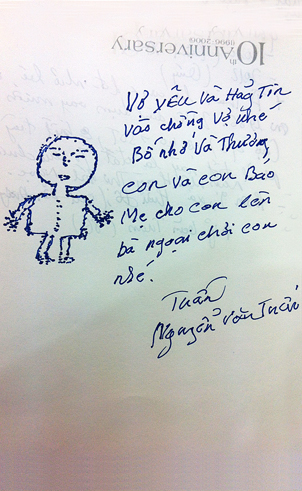 10th Anniversary
1999-2009
Vợ yêu và Hãy Tin
vào chồng vợ nhé
Bố nhớ và Thương
con và con Bảo
Mẹ cho con lên
bà ngoại chơi con
nhé.
Tuấn
Nguyễn Văn Tuấn